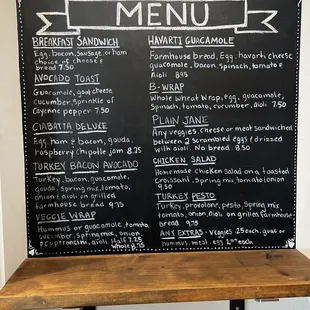 MENU
BREAKFAST SANDWICH
Egg, bacon, sausage, or ham
choice of cheese &
bread 7.50
AVOCADO TOAST
Guacamole, goat cheese
cucumber, sprinkle of
Cayenne pepper 7.50
CIABATTA DELUXE
Egg, ham & bacon, gouda,
raspberry chipotle jam 8.25
TURKEY BACON AVOCADO
Turkey, bacon, guacamole,
gouda, spring mix, tomato,
onion & aioli on grilled
Farmhouse bread 9.75
VEGGIE WRAP
Hummus or guacamole, tomato
cucumber, spring mix, onion,
pepperoncini, aioli. Half 7.25
whole 8.75
HAVARTI GUACAMOLE
Farmhouse bread, Egg, havarti cheese
guacamole, bacon, spinach, tomato &
Aioli 8.95
B-WRAP
Whole wheat wrap, egg, guacamole,
Spinach, tomato, cucumber, aioli 7.50
PLAIN JANE
Any veggies, cheese or meat sandwiched
between 2 scrambled eggs & drizzled
with aioli. No bread. 8.50
CHICKEN SALAD
Homemade chicken salad on a toasted
Croissant, spring mix, tomato & onion
9.50
TURKEY PESTO
Turkey, provolone, pesto, spring mix
tomato, onion, aioli on grilled farmhouse
bread. 9.75
ANY EXTRAS - veggies .25 each, guac or
hummus, meat, egg 2.00 each